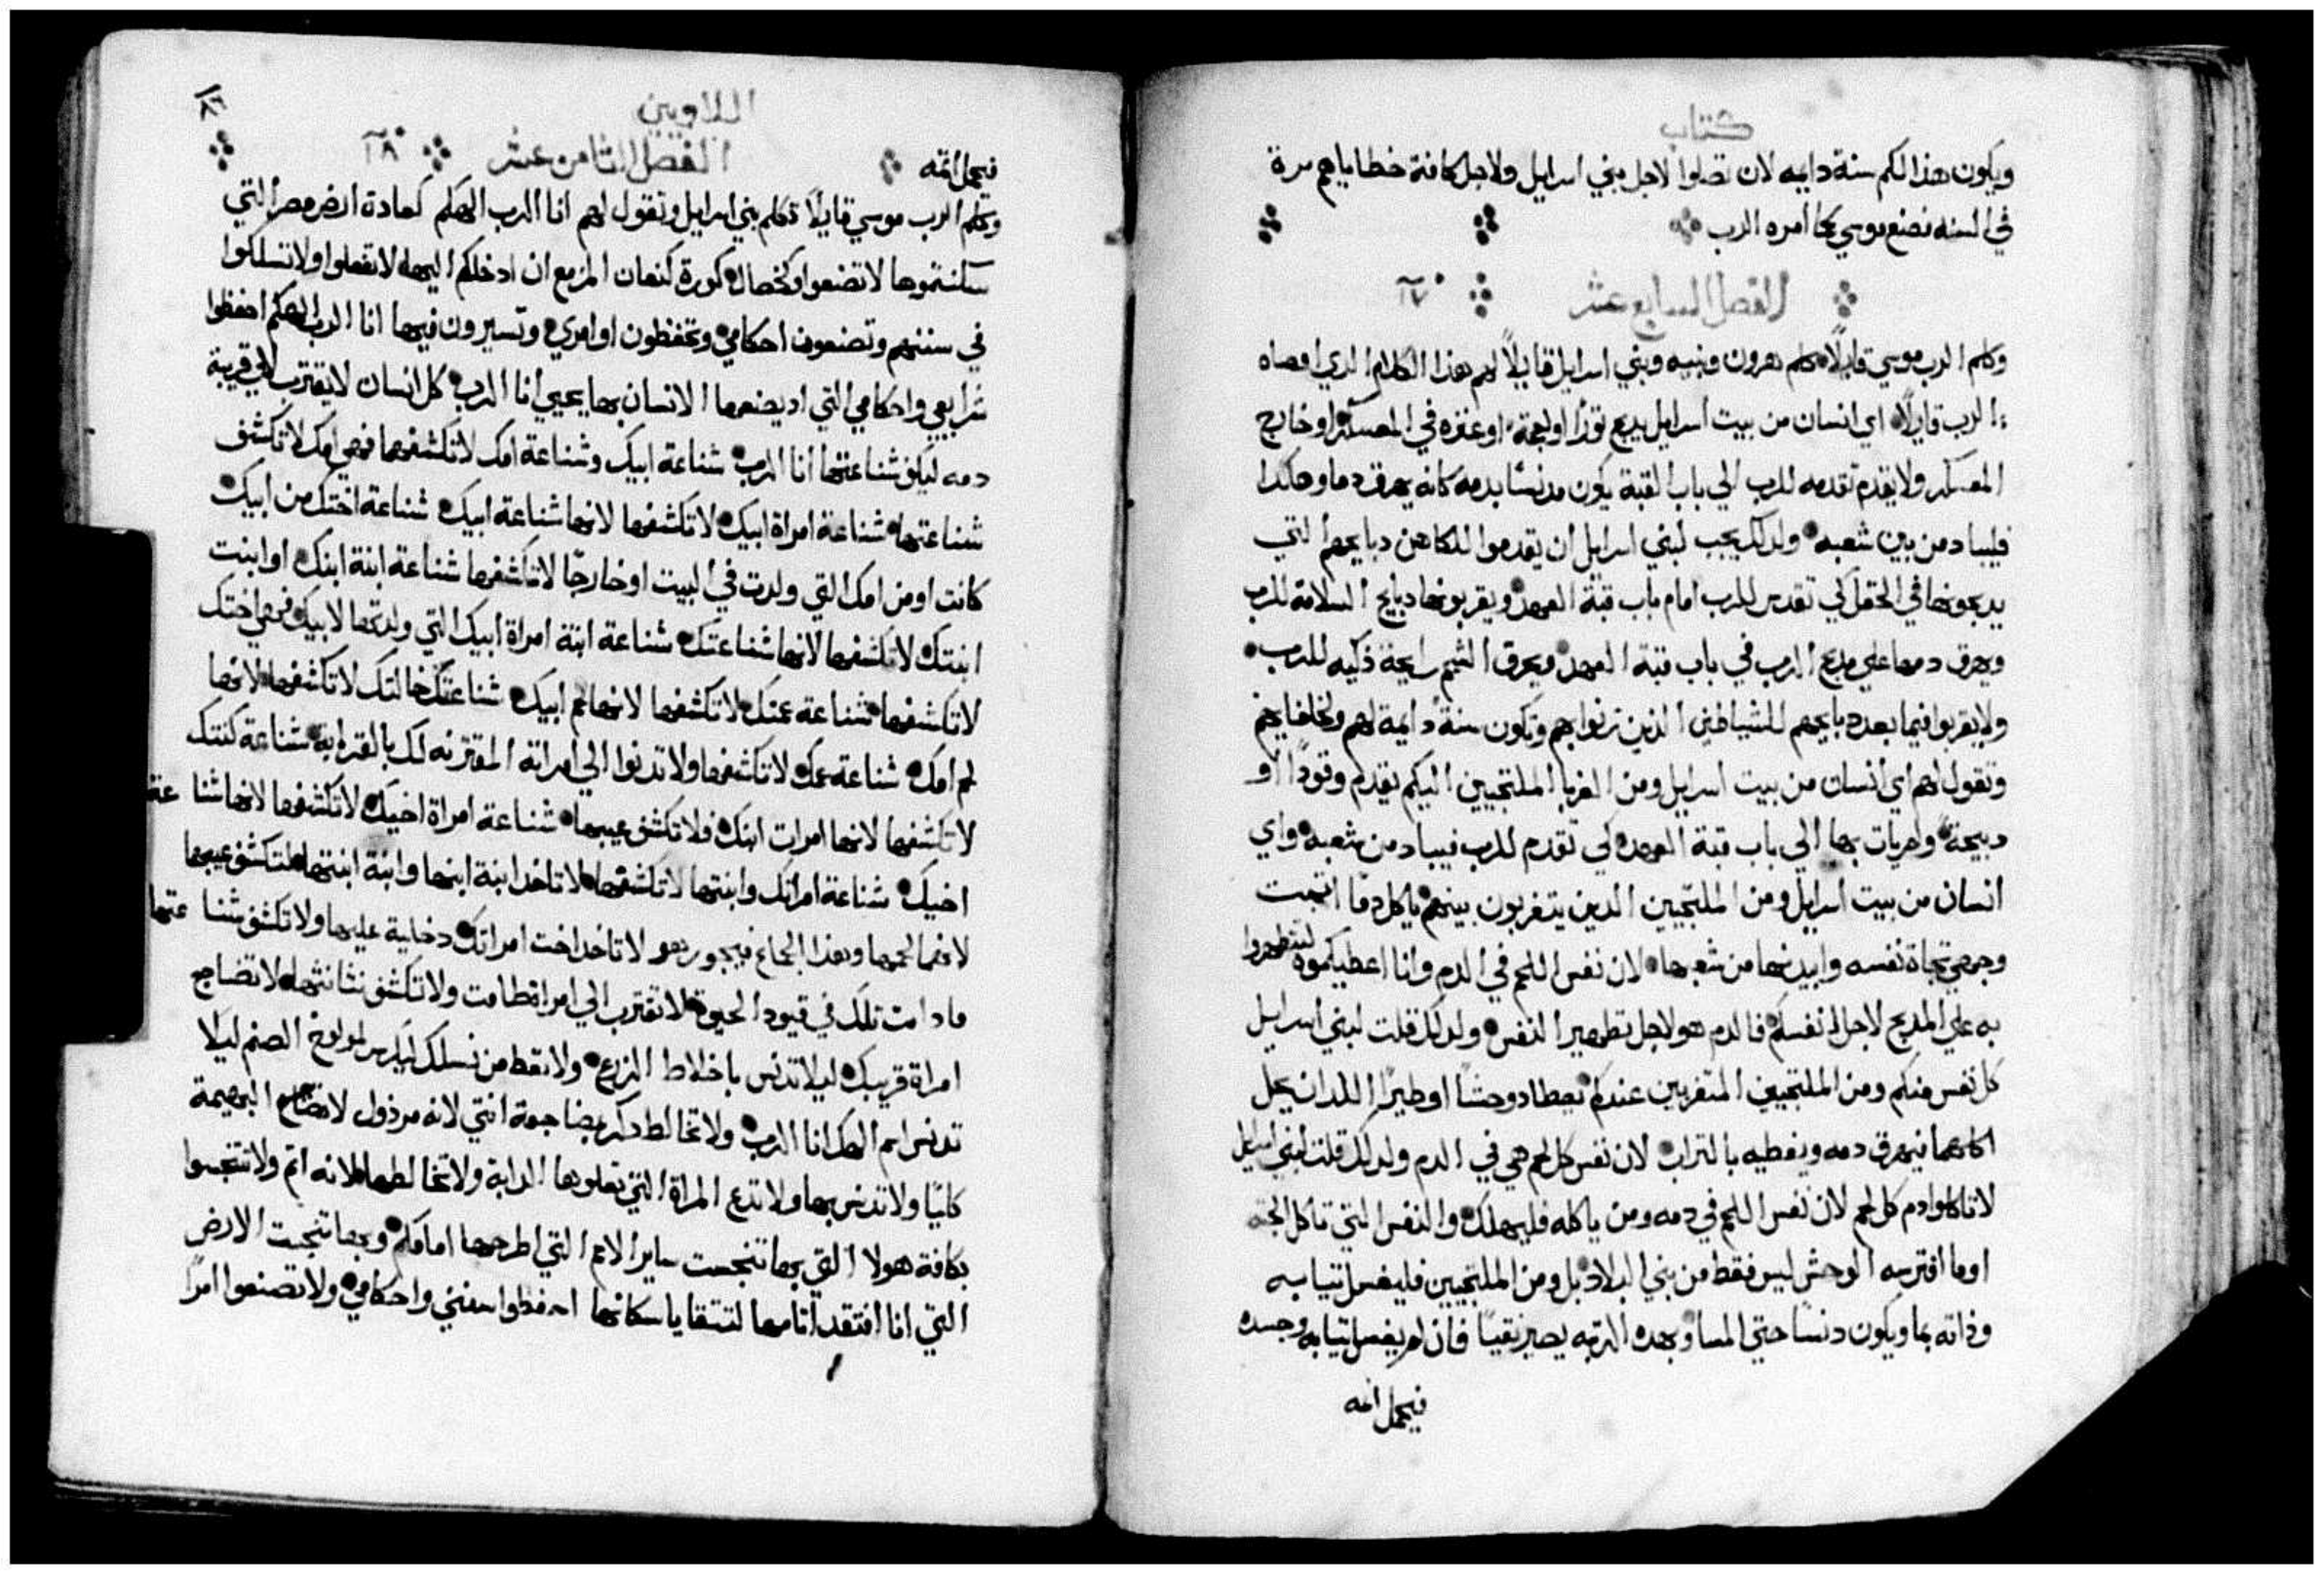 كتاب
ويكون هذا لكم سنة دايمه لان تصلوا لاجل بني اسرايل ولاجل كافة خطاياهم مرة
في السنه فصنع موسي كما امره الرب
الفصل السابع عشر ١٧
وكلم الرب موسي قايلاً كلم هرون وبنيه وبني اسرايل قايلاً لهم هذا الكلام الدي اوصاه
الرب قايلاً اي انسان من بيت اسرايل يدبح ثورًا او نعجة او عنزه في المعسكر او خارج
المعسكر ولا يقدم تقدمه للرب الي باب القبة يكون مدنسًا بدمه كانه يهرق دما وهاكدا
فليباد من بين شعبه ولدلك يجب لبني اسرايل ان يقدموا للكاهن دبايحهم التي
يدبحونها في الحقل كي تقدس للرب امام باب قبة العهد ويقربونها دبايح السلامة للرب
ويهرق دمها علي مدبح الرب في باب قبة العهد ويحرق الشحم رايحة ذكيه للرب
ولا يقربوا فيما بعد دبايحهم للشياطين الذين زنوا بهم وتكون سنة دايمة لهم ولخلفايهم
وتقول لهم اي انسان من بيت اسرايل ومن الغربا الملتجيين اليكم يقدم وقودًا او
دبيحة ولم يات بها الي باب قبة العهد لكي تقدم للرب فيباد من شعبه واي
انسان من بيت اسرايل ومن الملتجيين الدين يتغربون بينهم ياكل دمًا اثبت
وجهي تجاة نفسه وابيدنها من شعبها لان نفس اللحم في الدم وانا اعطيتكموه لتطهروا
به علي المدبح لاجل انفسكم فالدم هو لاجل تطهير النفس ولدلك قلت لبني اسرايل
كل نفس منكم ومن الملتجيين المتغربين عندكم يصطاد وحشًا او طيرًا اللدان يحل
اكلهما فيهرق دمه ويغطيه بالتراب لان نفس كل لحم هي في الدم ولدلك قلت لبني اسرايل
لا تاكلوا دم كل لحم لان نفس اللحم في دمه ومن ياكله فليهلك والنفس التي تاكل الجثه
او ما افترسه الوحش ليس فقط من بني البلاد بل ومن الملتجيين فليغسل تيابه
وذاته بما ويكون دنسًا حتي المسا وبهده الرتبه يصير نقيًا فان لم يغسل تيابه وجسده
فيحمل اثمه
اللاويين
فيحمل اثمه الفصل الثامن عشر ١٨
وكلم الرب موسي قايلاً كلم بني اسرايل وتقول لهم انا الرب الهكم كعادة ارض مصر التي
سكنتموها لا تصنعوا وكخصال كورة كنعان المزمع ان ادخلكم اليها لا تفعلوا ولا تسلكوا
في سننهم وتصنعون احكامي وتحفظون اوامري وتسيرون فيها انا الرب الهكم احفظوا
شرايعي واحكامي التي اد يصنعها الانسان بها يحيي انا الرب كل انسان لا يقترب لدي قريبة
دمه ليكشف شناعتها انا الرب شناعة ابيك وشناعة امك لا تكشفها فهي امك لا تكشف
شناعتها شناعة امراة ابيك لا تكشفها لانها شناعة ابيك شناعة اختك من ابيك
كانت او من امك التي ولدت في البيت او خارجًا لا تكشفها شناعة ابنة ابنك او ابنت
ابنتك لا تكشفها لانها شناعتك شناعة ابنة امراة ابيك التي ولدتها لابيك فهي اختك
لا تكشفها شناعة عمتك لا تكشفها لانها لحم ابيك شناعة خالتك لا تكشفها لانها
لحم امك شناعة عمك لا تكشفها ولا تدنوا الي امراته المقترنه لك بالقرابه شناعة كنتك
لا تكشفها لانها امرات ابنك فلا تكشف عيبها شناعة امراة اخيك لا تكشفها لانها شناعة
اخيك شناعة امراتك وابنتها لا تكشفها لا تاخد ابنة ابنها وابنة ابنتها لتكشف عيبها
لانهما لحمها وهذا الجماع فيجور هو لا تاخد اخت امراتك دخلية عليها ولا تكشف شناعتها
ما دامت تلك في قيود الحيوة لا تقترب الي امراة طامت ولا تكشف نثانتها لا تضاجع
امراة قريبك ليلا تدنس باخلاط الزرع ولا تعط من نسلك الصنم ليلا
تدنس اسم الهك انا الرب ولا تخالط دكر بمضاجعة انتي لانه مردول لا تضاجع البهيمة
كليًا ولا تدنس بها ولا تدع المراة التي تعلوها الدابة ولا تخالطها لانه اتم ولا تتنجسوا
بكافة هولا التي بها تنجست ساير الامم التي اطرحها امامكم وبها تنجست الارض
التي انا افتقد اتامها لتتقايا سكانها احفظوا سنني واحكامي ولا تصنعوا امرًا